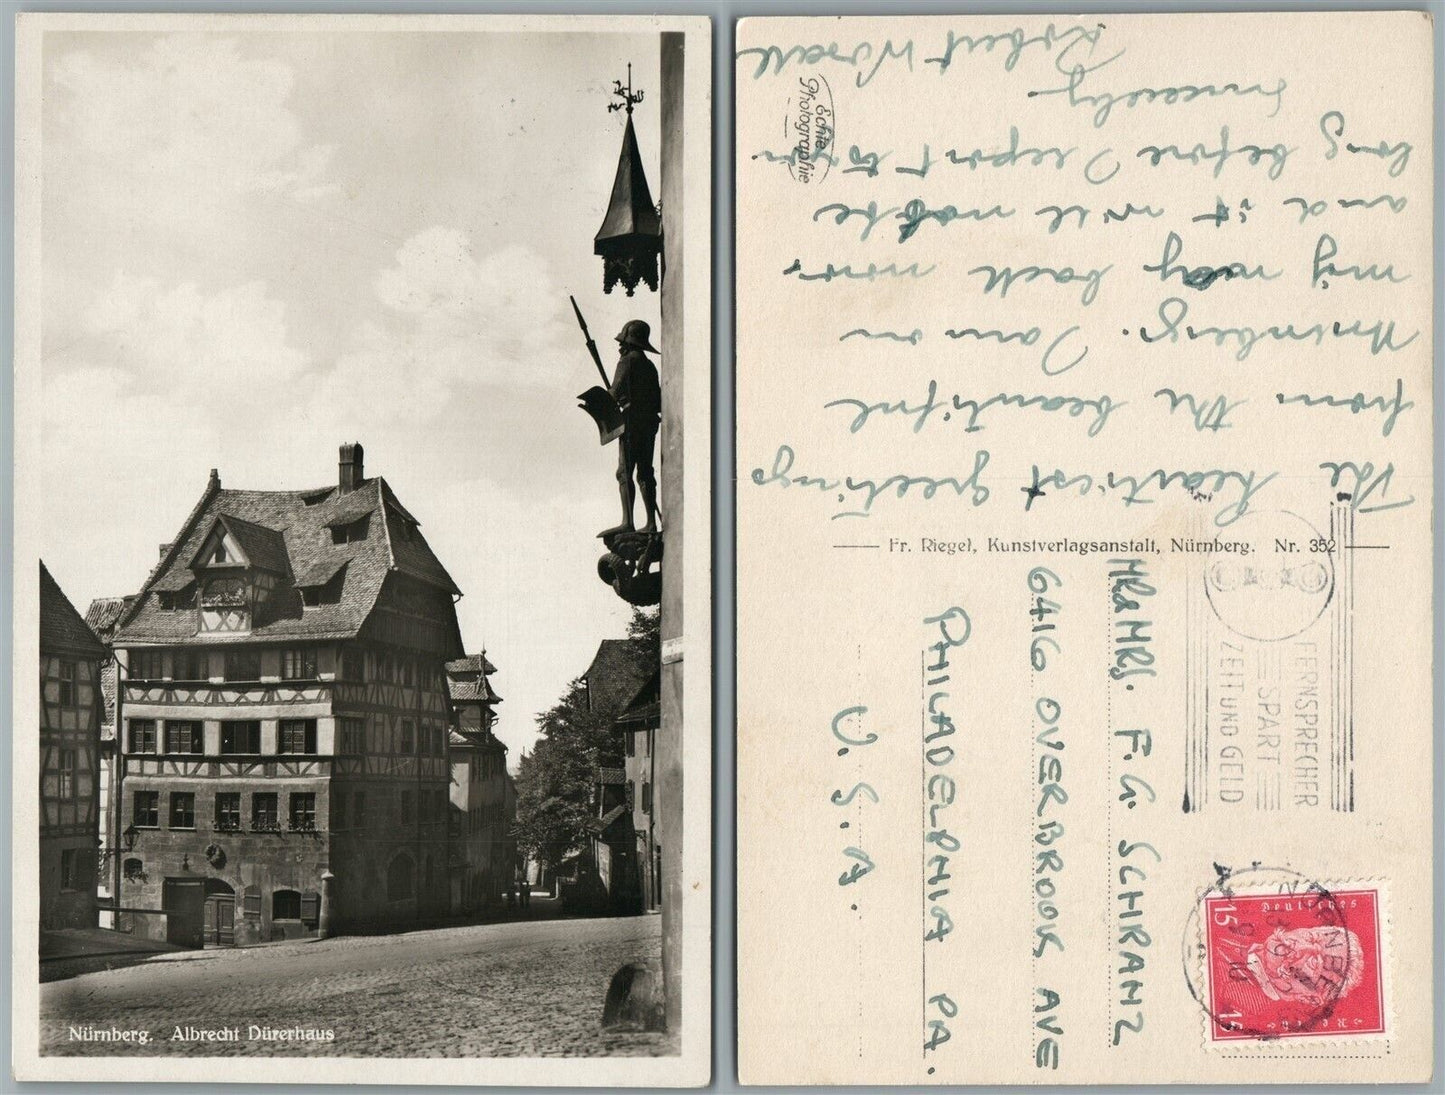 Nürnberg. Albrecht Dürerhaus
The heartiest greetings
from the beautiful
Nurnberg. I am on
my way back now
and it will not be
long before I report to you
Sincerely
Robert
Echte
Photographie
Fr. Riegel, Kunstverlagsanstalt, Nürnberg. Nr. 352
MR & MRS. F. G. SCHRANZ
6416 OVERBROOK AVE
PHILADELPHIA PA.
U. S. A.
FERNSPRECHER
SPART
ZEIT UND GELD
NÜRNBERG
Deutsches
Reich
15 15